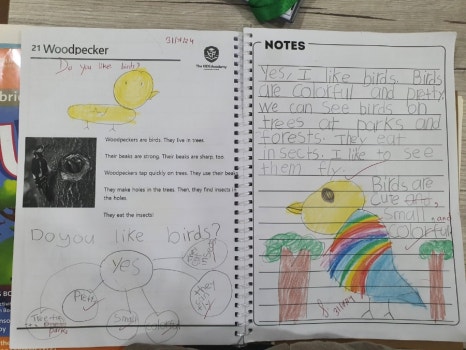 21 Woodpecker
Do you like birds?
Woodpeckers are birds. They live in trees.
Their beaks are strong. Their beaks are sharp, too.
Woodpeckers tap quickly on trees. They use their beaks.
They make holes in the trees. Then, they find insects in
the holes.
They eat the insects!
Do you like birds?
yes
Pretty
Small
NOTES
Yes, I like birds. Birds
are colorful and pretty.
We can see birds on
trees at parks and
forests. They eat
insects. I like to see
them fly.
Birds are
cute
small and
colorful